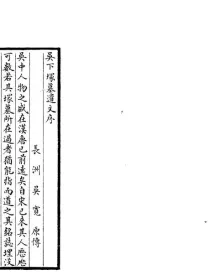 吳下塚墓遺文序
長洲吳寬原博
吳中人物之盛在漢唐已前遠矣自宋已來其人歷歷
可數若其塚墓所在過者猶能指而道之其銘誌埋沒